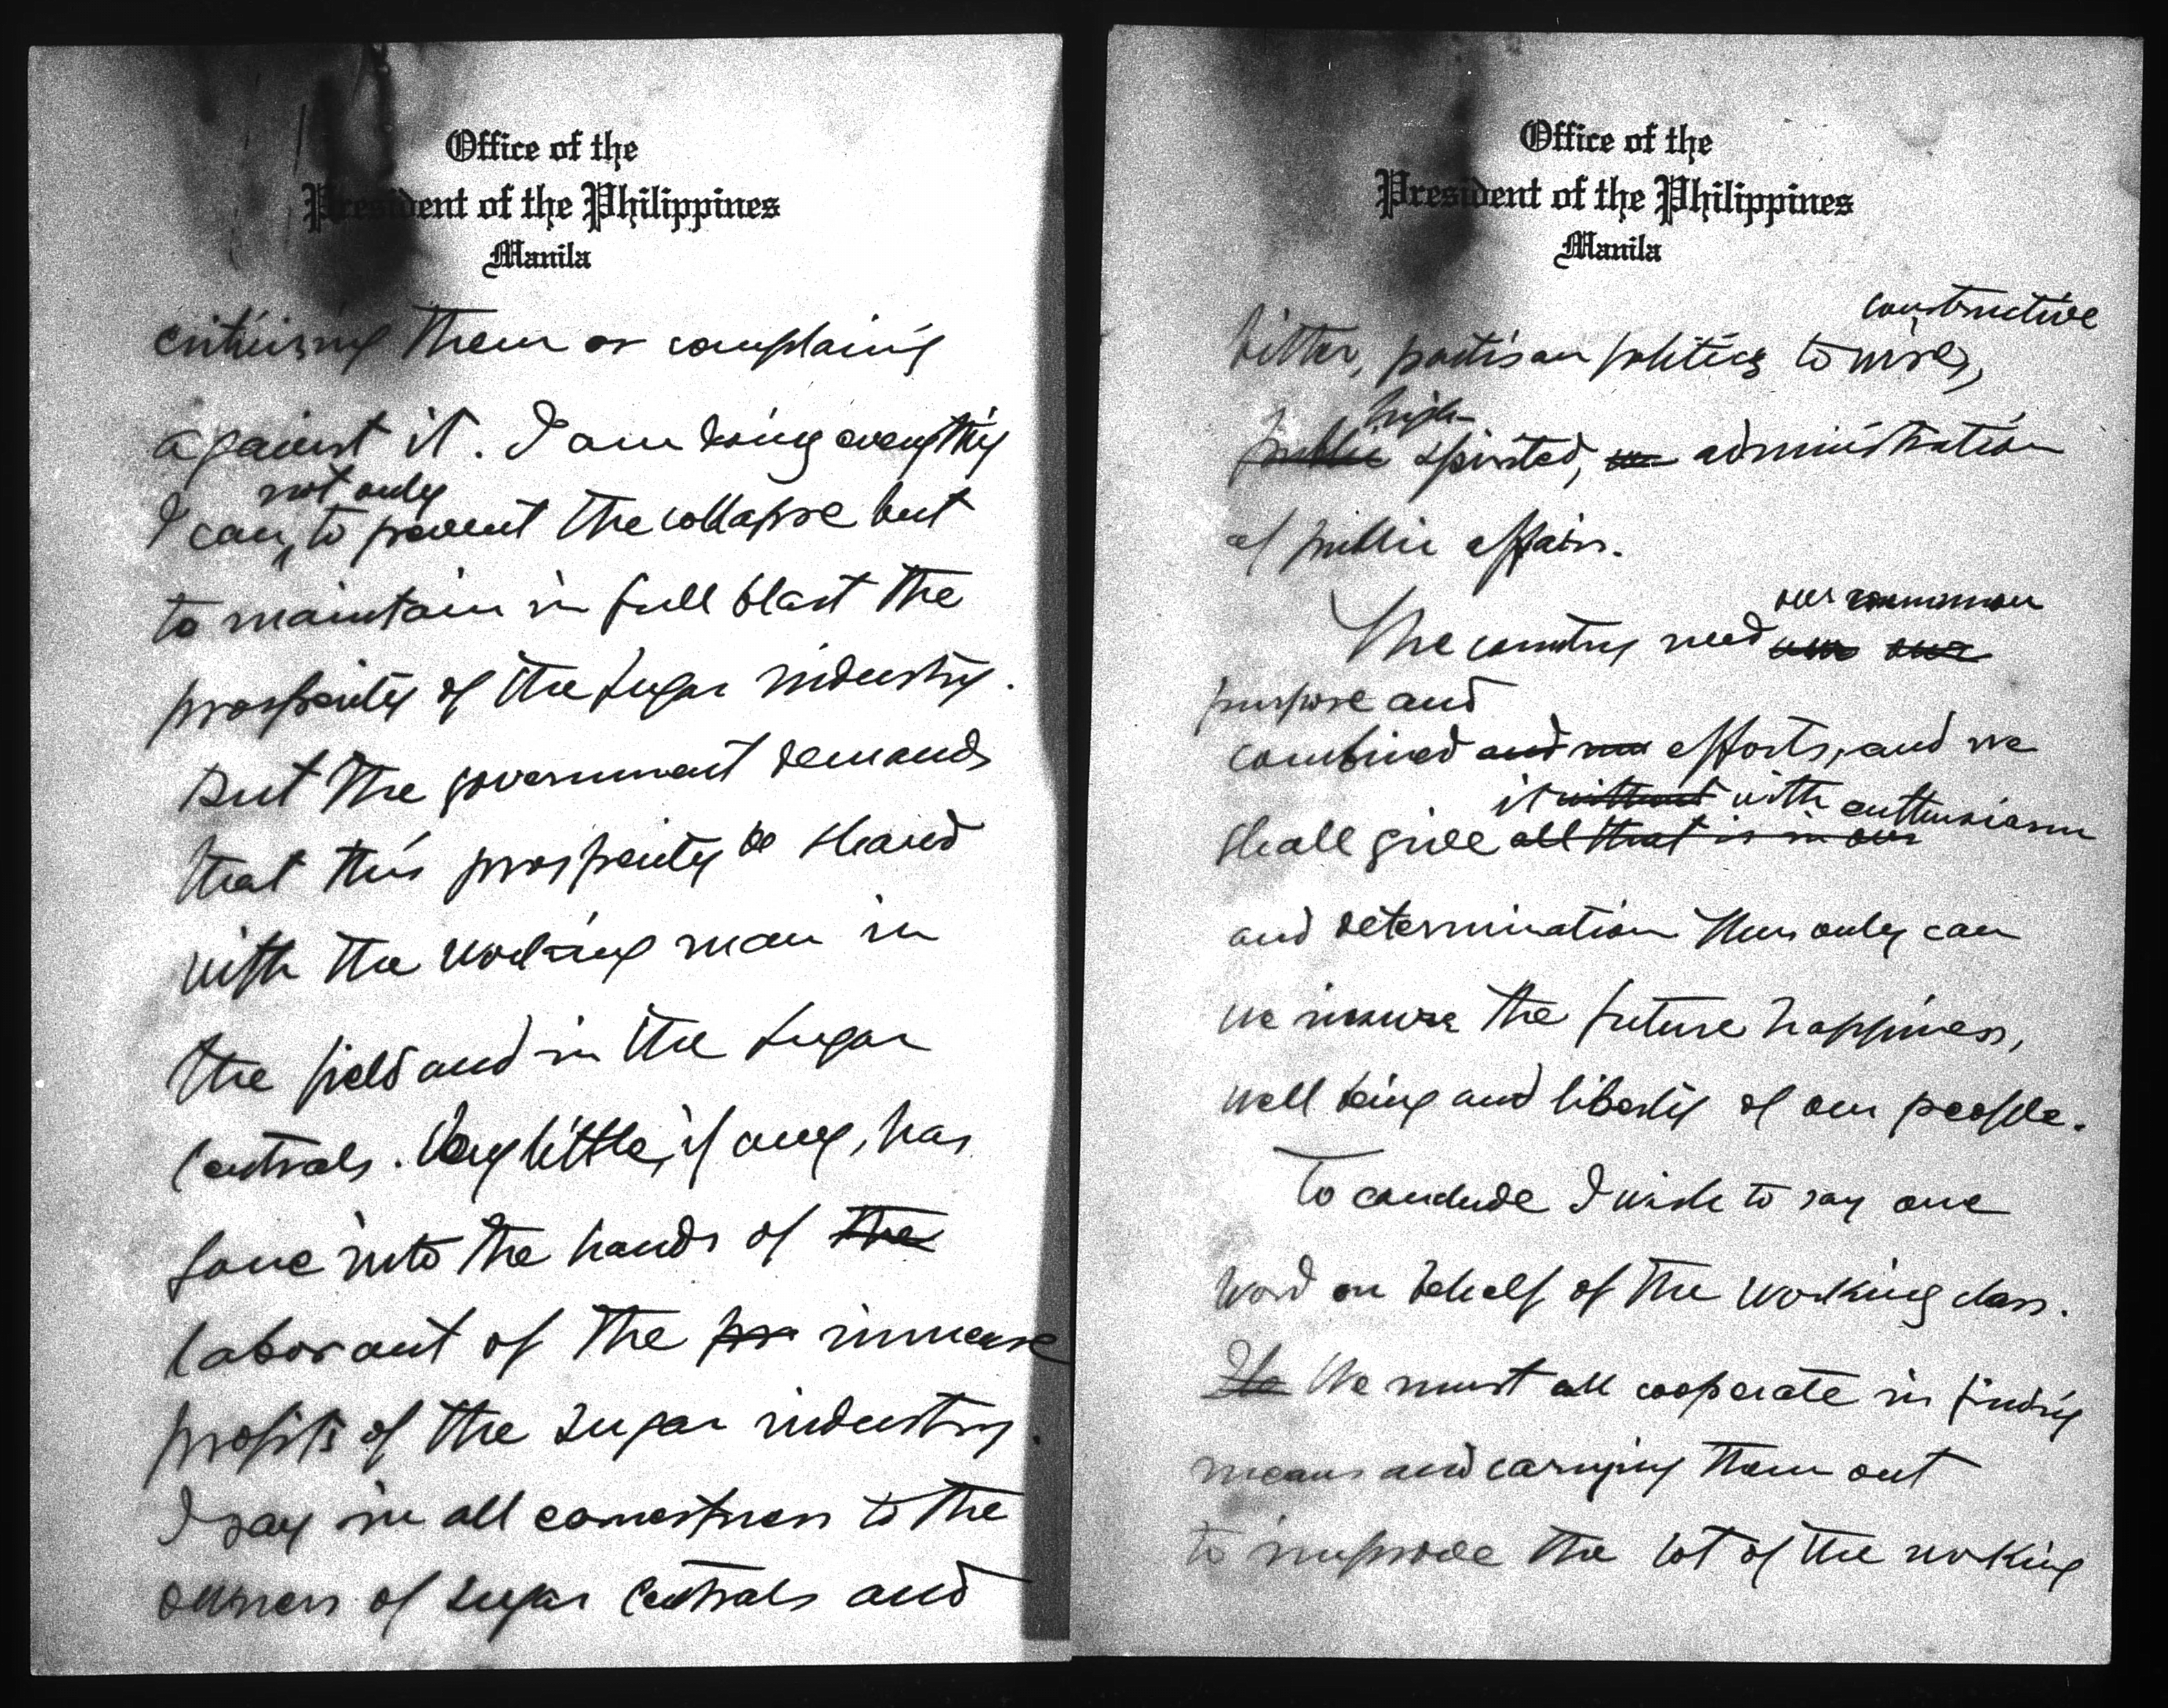 Office of the
President of the Philippines
Manila
criticising them or complaining
against it. I am doing everything
not only
I can, to prevent the collapse but
to maintain in full blast the
prosperity of the sugar industry.
But the government demands
that this prosperity be shared
with the working man in
the field and in the sugar
Centrals. Very little, if any, has
gone into the hands of the
labor out of the pro immense
profits of the sugar industry.
I say in all earnestness to the
owners of sugar Centrals and
Office of the
President of the Philippines
Manila
constructive
bitter, partisan politics to wise,
high-
public spirited, administration
of public affairs.
our common
The country need our
purpose and
combined and efforts, and we
it without with enthusiasm
shall give all that is in our
and determination Thus only can
we insure the future happiness,
well being and liberty of our people.
To conclude I wish to say one
word on behalf of the working class.
We must all cooperate in finding
means and carrying them out
to improve the lot of the working